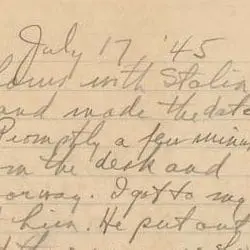 July 17 '45
ours with Stalin
and made the date
Promptly a few minu
om the desk and
orway. I got to my
him. He put out